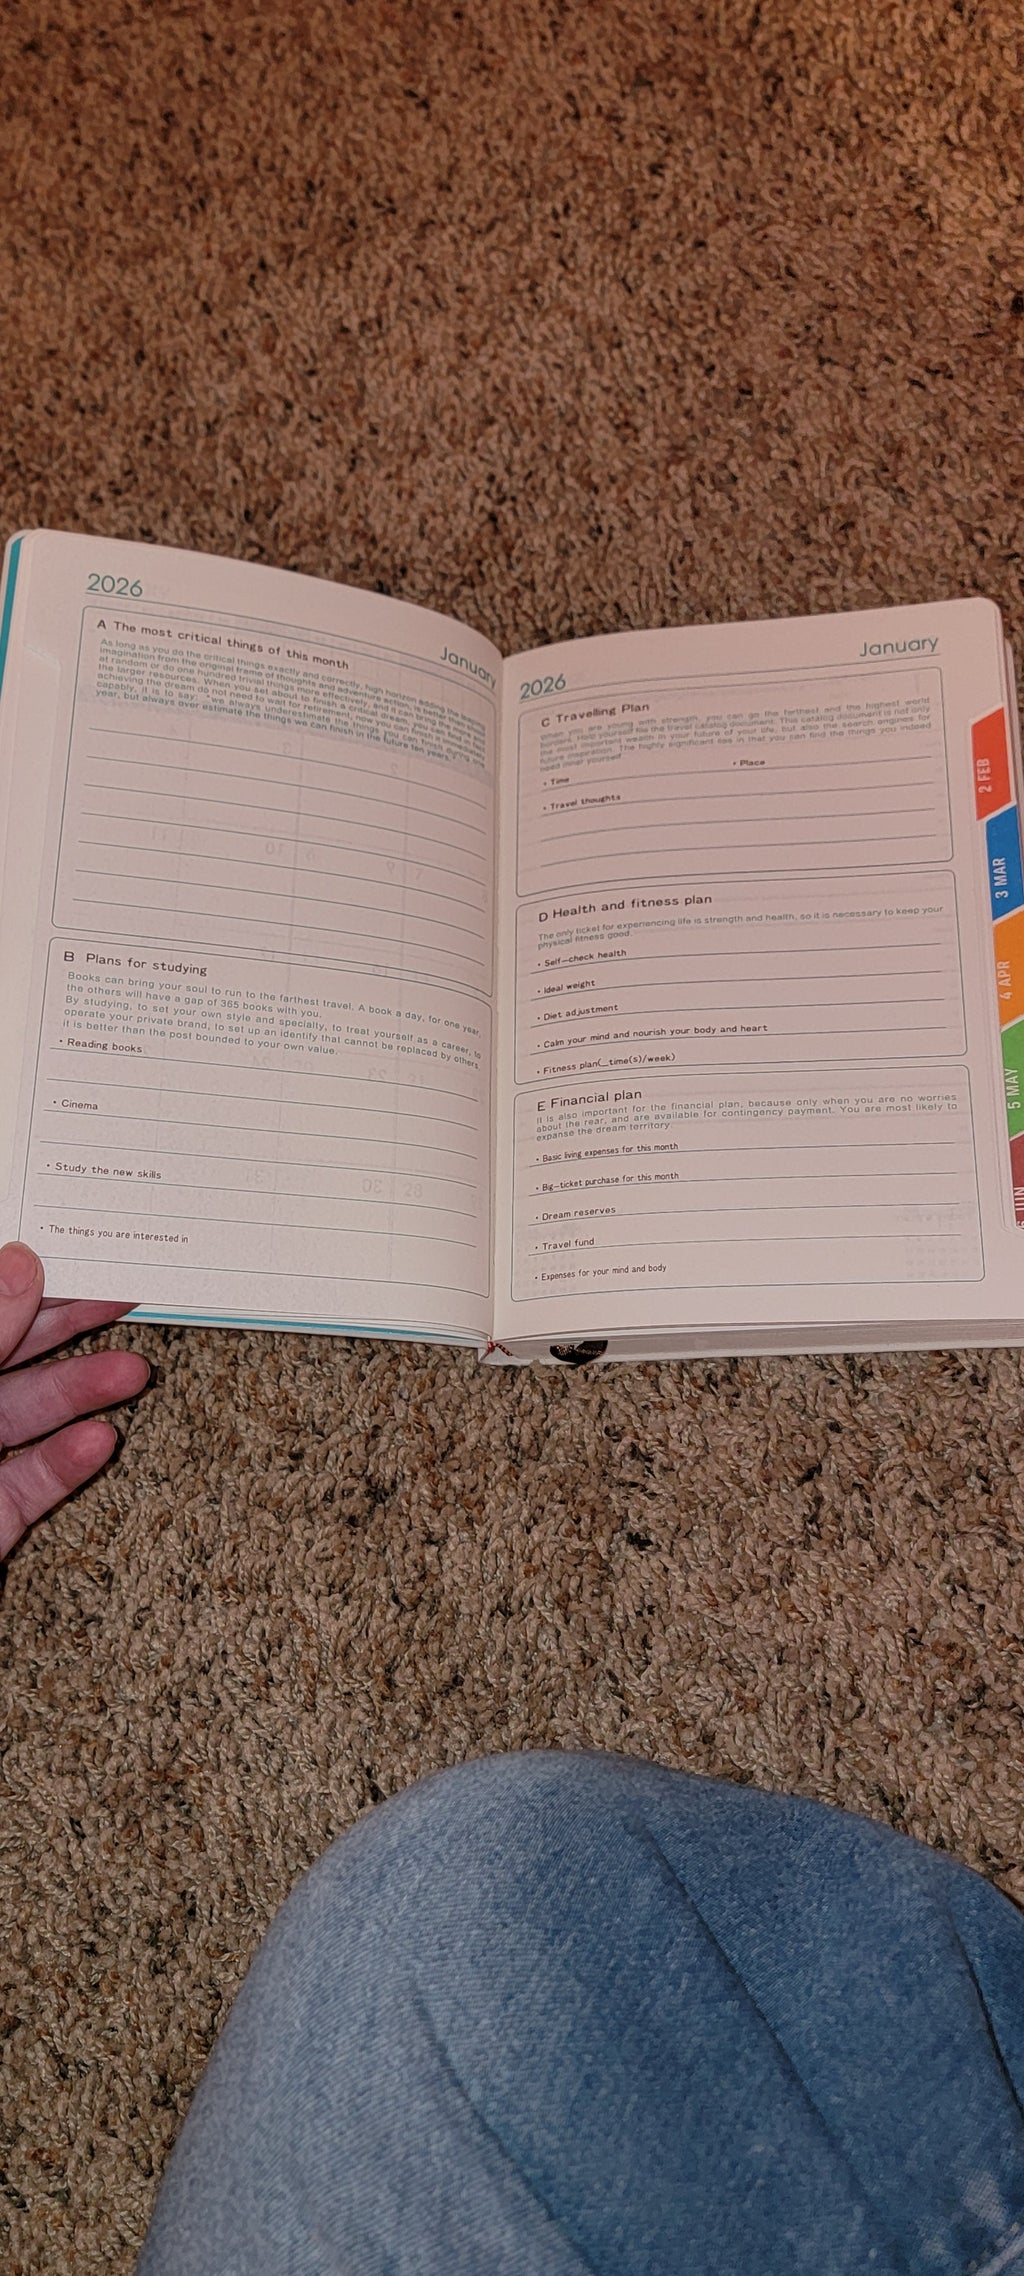 2026
January
A The most critical things of this month
As long as you do the critical things exactly and correctly, high horizon adding the
imagination from the original frame of thoughts and adventure action, is better than
at random or do one hundred trivial things more effectively, and it can bring the
the larger resources. When you set about to finish a critical dream, you can find in fact
achieving the dream do not need to wait for retirement, now you finish it
capably, it is to say: "we always underestimate the things you can finish
year, but always over estimate the things we can finish in the future ten years."
B Plans for studying
Books can bring your soul to run to the farthest travel. A book a day, for one year,
the others will have a gap of 365 books with you.
By studying, to set your own style and specially, to treat yourself as a career, to
operate your private brand, to set up an identify that cannot be replaced by others,
it is better than the post bounded to your own value.
• Reading books
• Cinema
• Study the new skills
• The things you are interested in
2026
January
C Travelling Plan
When you are young with strength, you can go the farthest and the highest world
borders. Hold yourself file the travel catalog document. This catalog document is not only
the most important wealth in your future of your life, but also the search engines for
future inspiration. The highly significant is in that you can find the things you indeed
need inner yourself.
• Time
• Place
• Travel thoughts
D Health and fitness plan
The only ticket for experiencing life is strength and health, so it is necessary to keep your
physical fitness good.
• Self-check health
• Ideal weight
• Diet adjustment
• Calm your mind and nourish your body and heart
• Fitness plan(_time(s)/week)
E Financial plan
It is also important for the financial plan, because only when you are no worries
about the rear, and are available for contingency payment. You are most likely to
expanse the dream territory.
• Basic living expenses for this month
• Big-ticket purchase for this month
• Dream reserves
• Travel fund
• Expenses for your mind and body
2 FEB
3 MAR
4 APR
5 MAY
JUN